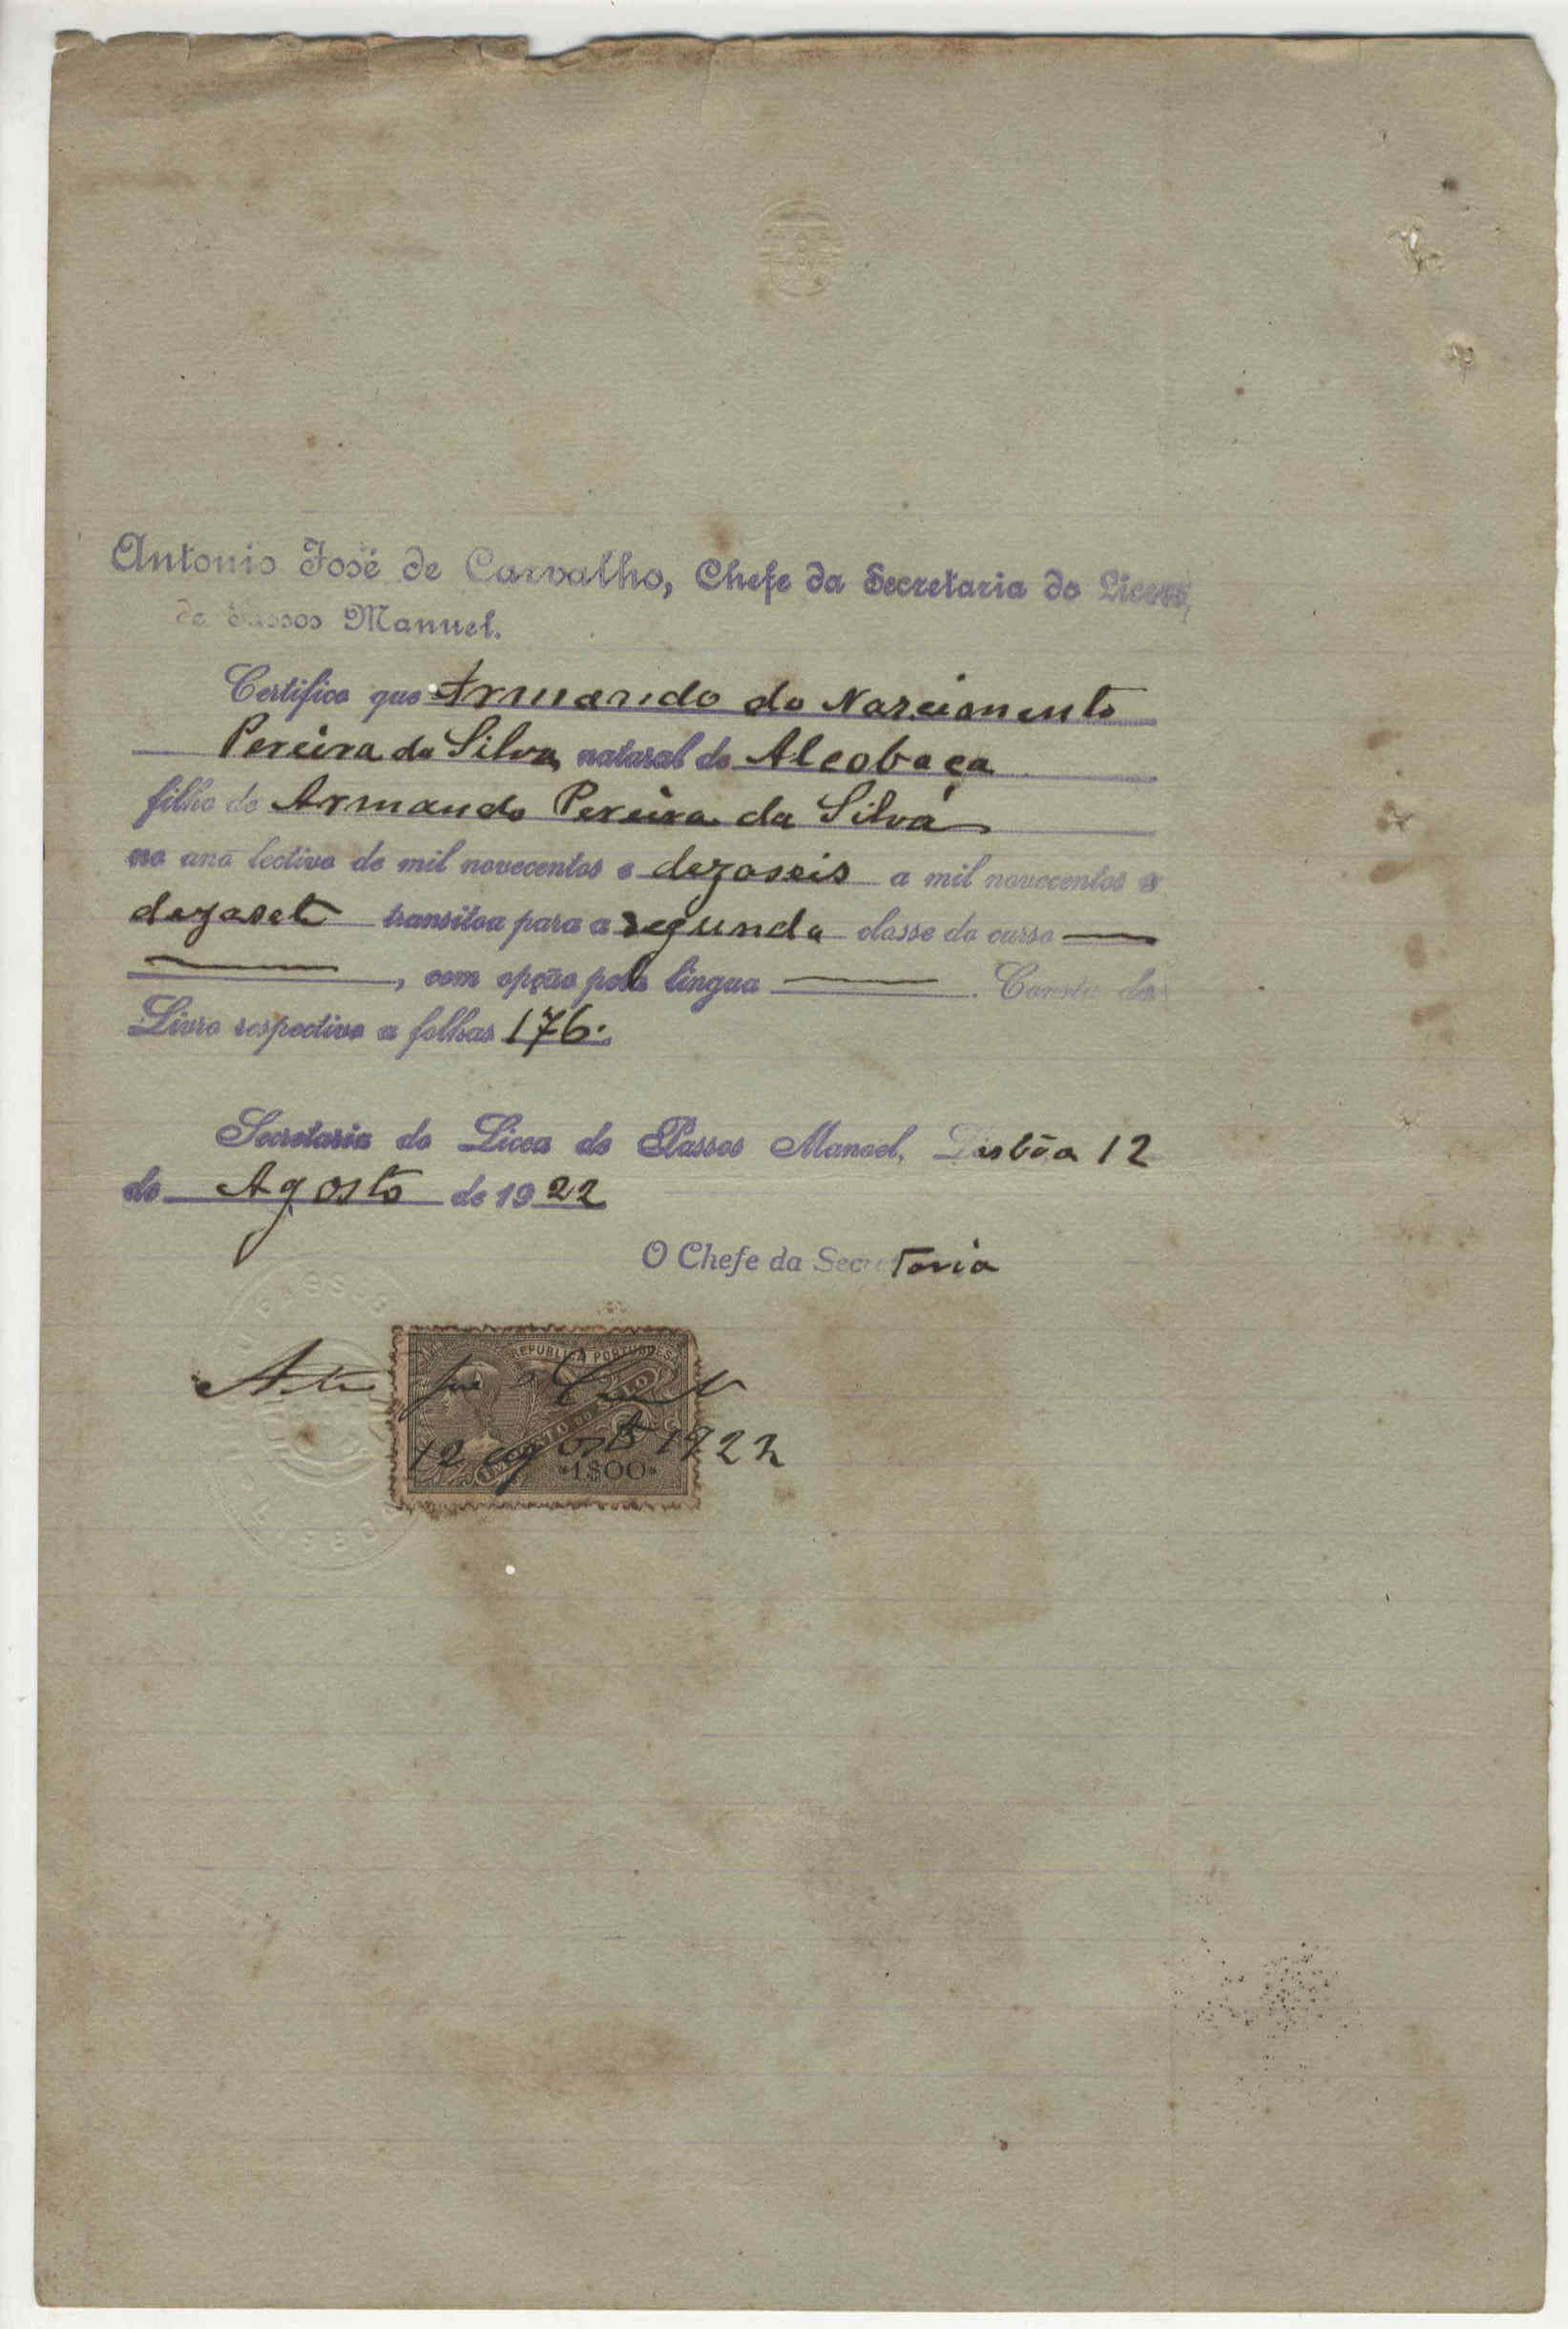 Antonio José de Carvalho, Chefe da Secretaria do Liceu
de Passos Manuel.
Certifico que Armando do Nascimento
Pereira da Silva, natural de Alcobaça
filho de Armando Pereira da Silva
no ano lectivo de mil novecentos e dezaseis a mil novecentos e
dezasete transitou para a segunda classe do curso —
—, com opção pela língua —. Consta do
Livro respectivo a folhas 176.
Secretaria do Liceu de Passos Manoel, Lisbôa 12
de Agosto de 1922
O Chefe da Secretaria
REPUBLICA PORTUGUESA
IMPOSTO DO SELO
12 agosto 1922
1$00
PASSOS
LISBOA